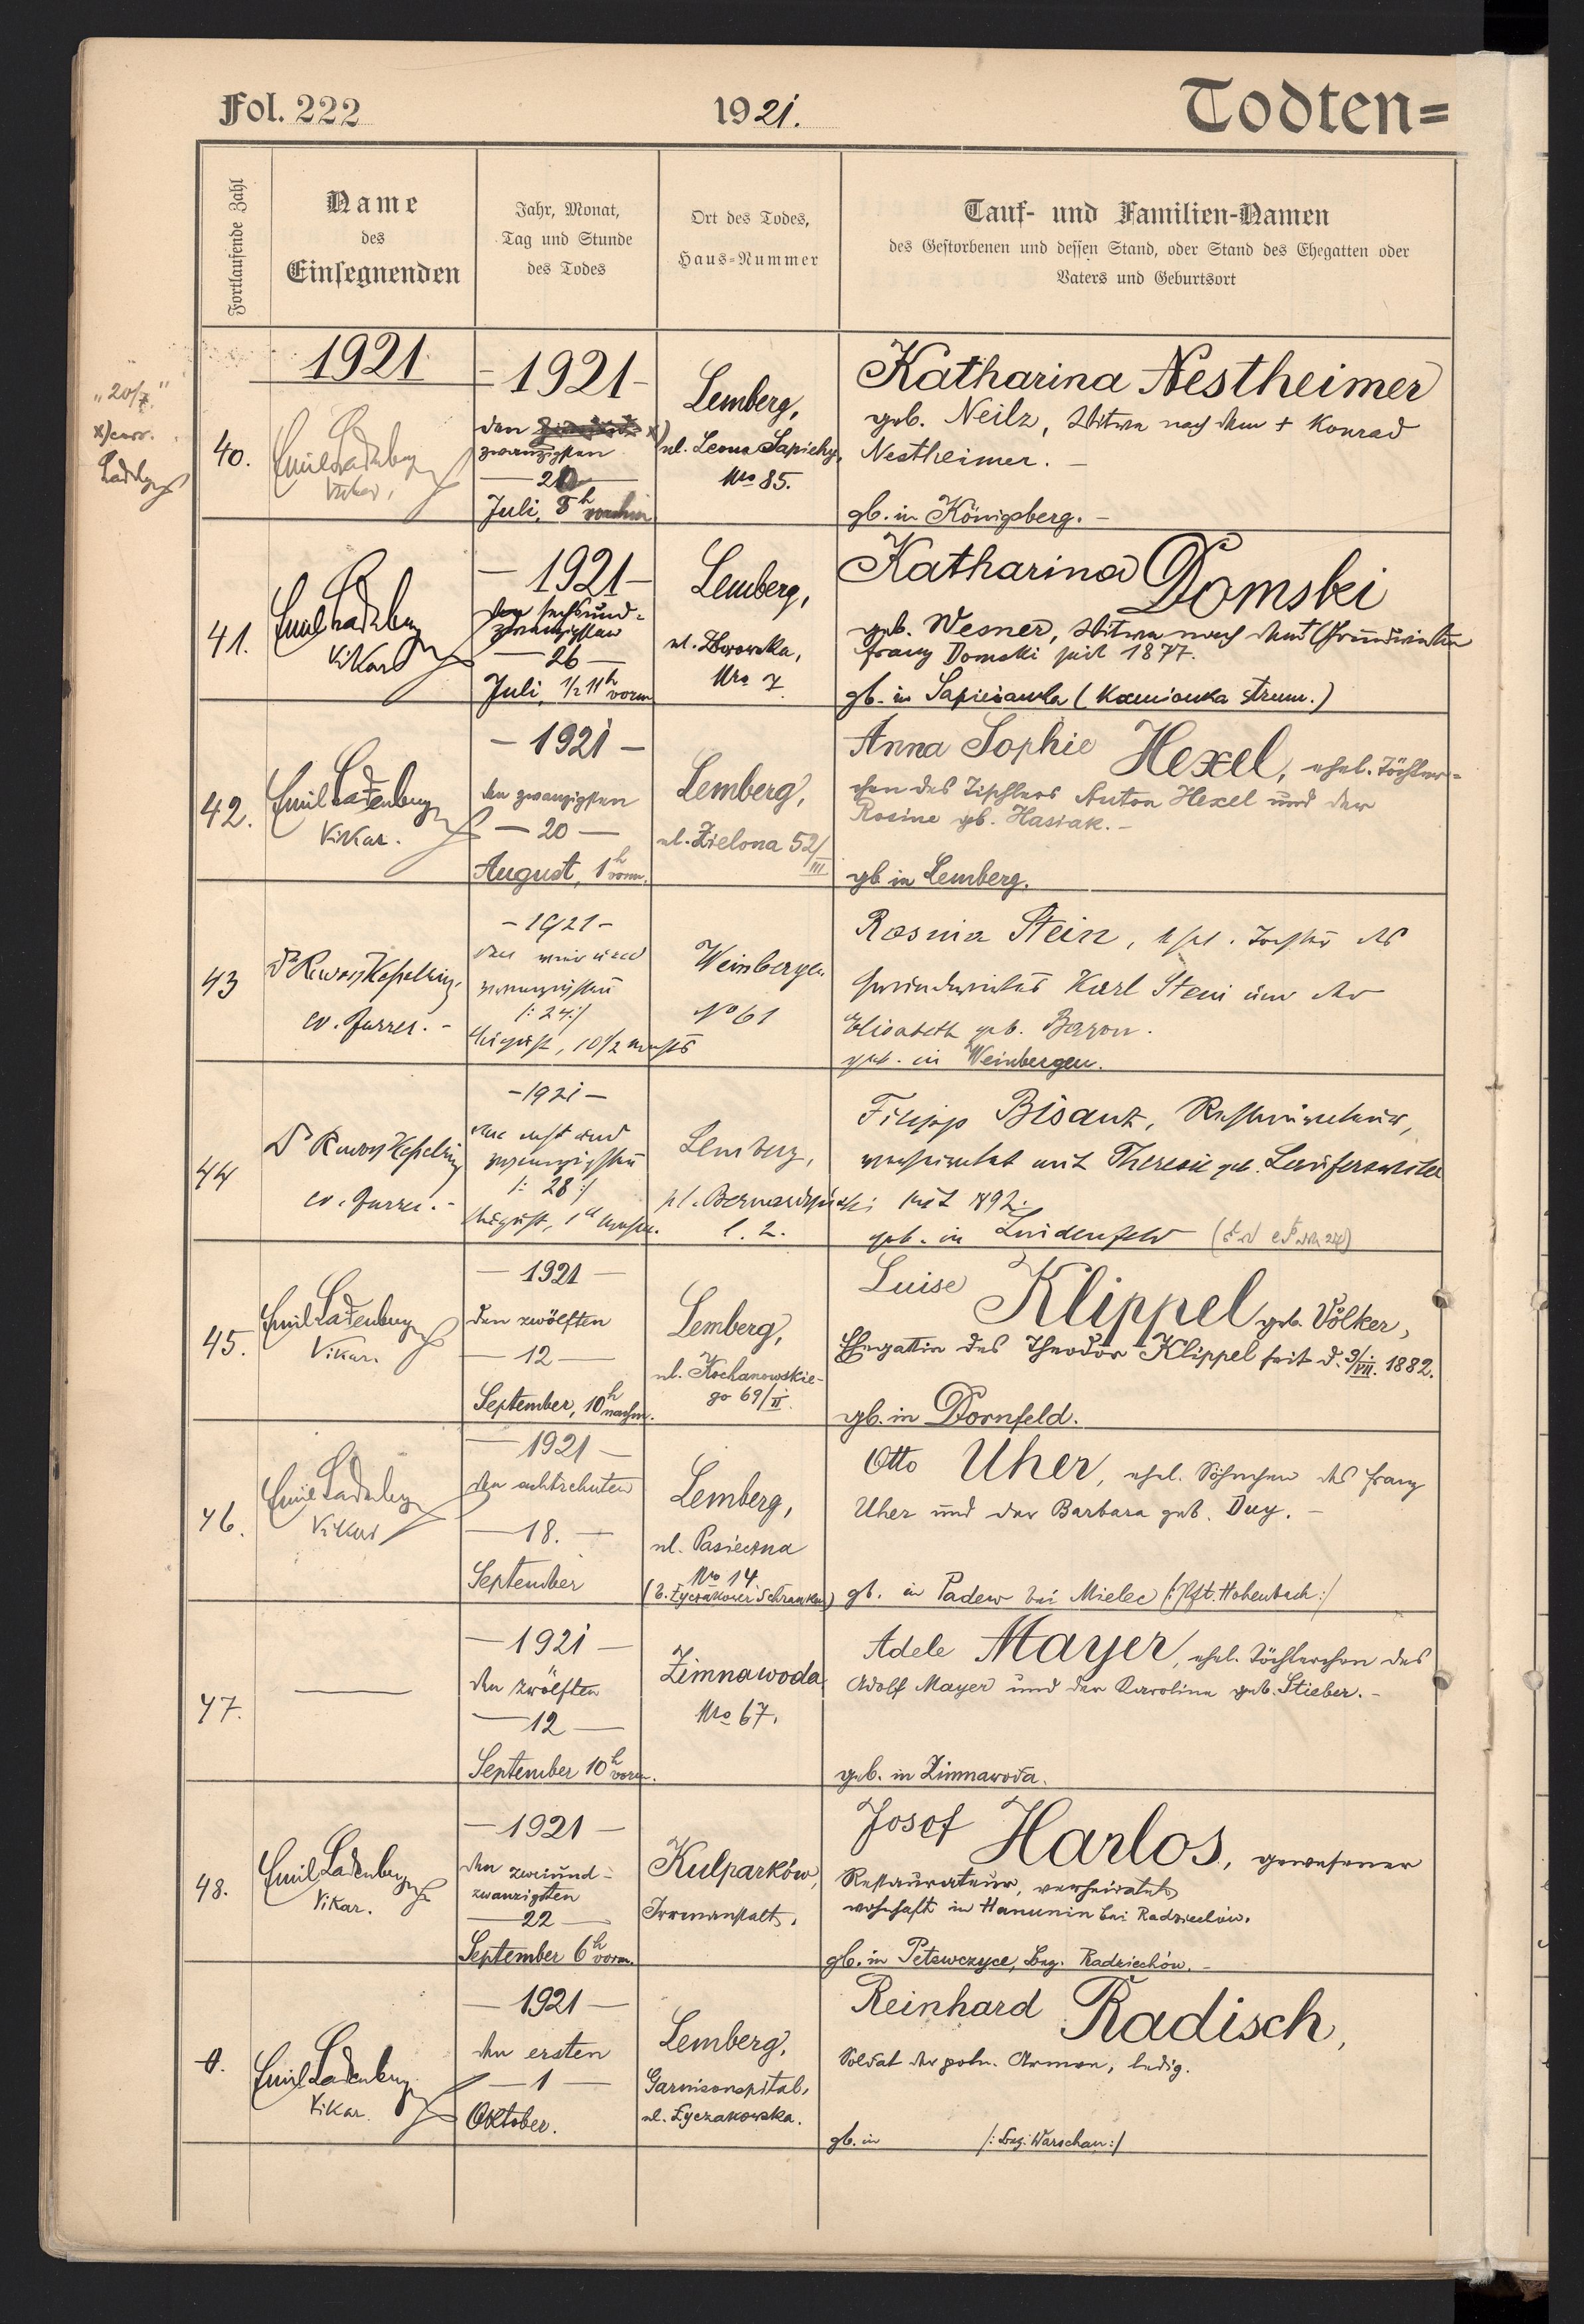 Fol. 222
1921.
Todten=
Fortlaufende Zahl
Name
des
Einsegnenden
Jahr, Monat,
Tag und Stunde
des Todes
Ort des Todes,
Haus-Nummer
Tauf- und Familien-Namen
des Gestorbenen und dessen Stand, oder Stand des Ehegatten oder
Vaters und Geburtsort
1921
"20/7."
x)corr.
40.
Emil Ladenberger
Vikar,
- 1921 -
den x)
zwanzigsten
— 20 —
Juli, 8h
Lemberg,
ul. Leona Sapiehy,
Nro 85.
Katharina Nestheimer
geb. Neilz, Witwe nach dem + Konrad
Nestheimer. -
gb. in Königsberg. -
41.
Emil Ladenberger
Vikar
— 1921 —
den sechsund=
zwanzigsten
— 26 —
Juli, 1/2 11h vorm
Lemberg,
ul. Dworska,
Nro 7
Katharina Domski
geb. Wesner, Witwe nach dem + Grundwirten
Franz Domski seit 1877.
gb. in Sapieżanka (Kamionka strum.)
42.
Emil Ladenberger
Vikar.
— 1921 —
den zwanzigsten
— 20 —
August, 1h vorm.
Lemberg,
ul. Zielona 52/III
Anna Sophie Hexel, ehel. Töchter=
chen des Tischlers Anton Hexel und der
Rosine gb. Hasiak. -
gb in Lemberg.
43
Dr Kesselring
ev. Pfarrer. -
- 1921 -
den
zwanzigsten
/: 24 :/
August, 10 1/2 nachts
Weinbergen
No 61
Rosina Stein, ehel. Tochter des
Grundwirtes Karl Stein und der
Elisabeth geb. Bazon.
geb. in Weinbergen.
44
Dr Kesselring
ev. Pfarrer. -
- 1921 -
den acht und
zwanzigsten
/: 28 :/
August, 1h
Lemberg,
pl. Bernardyński
l. 2.
Filipp Bisanz, Restaurateur,
verheiratet mit Therese geb.
seit 1892.
geb. in Lindenfeld
45.
Emil Ladenberger
Vikar.
— 1921 —
den zwölften
— 12 —
September, 10h nachm.
Lemberg,
ul. Kochanowskie-
go 69/II.
Luise Klippel geb. Völker,
Ehegattin des Theodor Klippel seit d. 9/VII. 1882.
gb. in Dornfeld.
46.
Emil Ladenberger
Vikar
— 1921 —
den achtzehnten
— 18. —
September
Lemberg,
ul. Pasieczna
Nro 14
(b. Łyczakower Schranken)
Otto Uher, ehel. Söhnchen des Franz
Uher und der Barbara geb. Duy. -
gb. in Padew bei Mielec /: Pft. Hohenbach :/
47.
— 1921 —
den zwölften
— 12 —
September 10h vorm.
Zimnawoda
Nro 67.
Adele Mayer, ehel. Töchterchen des
Adolf Mayer und der Karoline geb. Stieber. -
geb. in Zimnawoda.
48.
Emil Ladenberger
Vikar.
— 1921 —
den zweiund-
zwanzigsten
— 22 —
September 6h vorm.
Kulparków,
Irrenanstalt.
Josef Harlos, gewesener
Restaurateur, verheiratet
wohnhaft in Hanunin bei Radziechów.
gb. in Petewczyce, Bez. Radziechów. -
Emil Ladenberger
Vikar.
— 1921 —
den ersten
— 1 —
Oktober.
Lemberg,
Garnisonspital,
ul. Łyczakowska.
Reinhard Radisch,
Soldat der poln. Armee, ledig.
gb. in /: Bez. Warschau :/